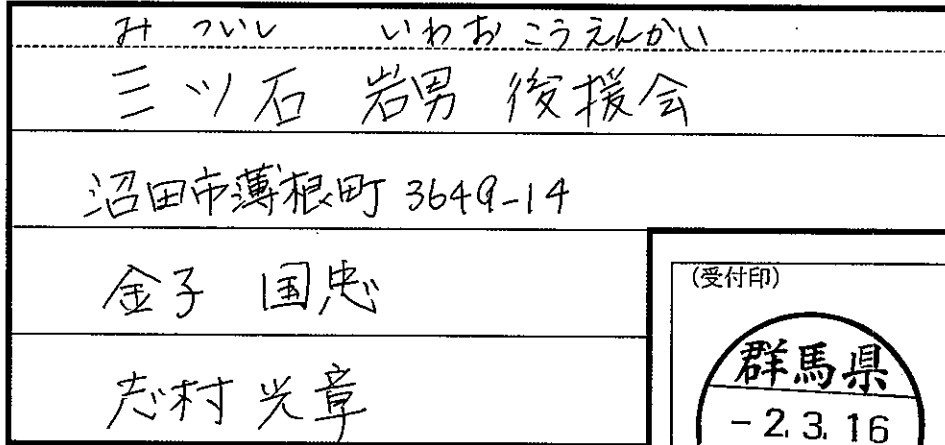 みついし いわおこうえんかい
三ツ石 岩男 後援会
沼田市薄根町3649-14
金子 国忠
志村光章
(受付印)
群馬県
-2.3.16